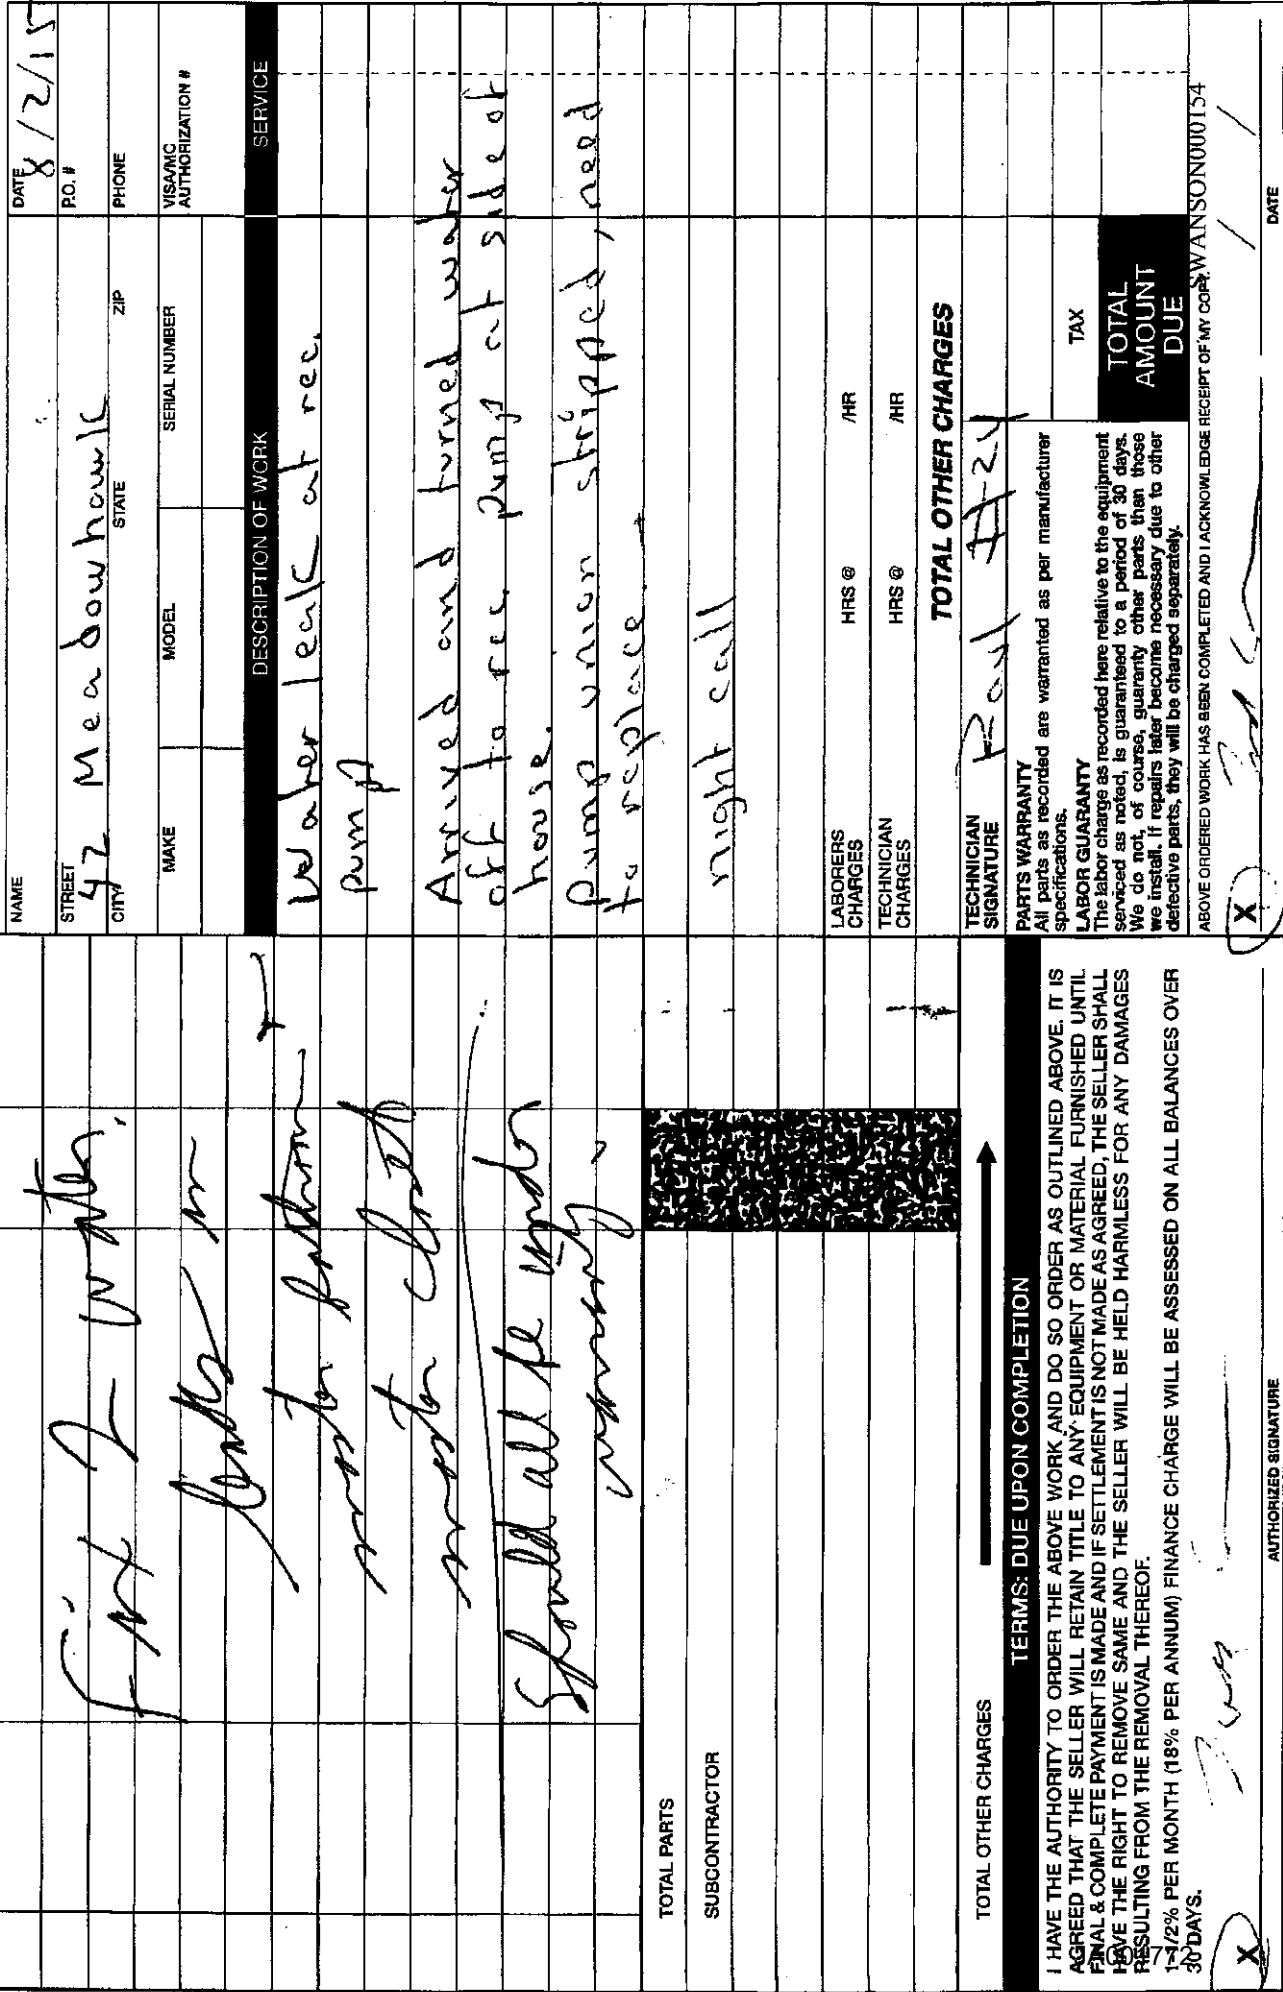 NAME
DATE 8/2/15
STREET 42 Meadowhawk
P.O. #
CITY STATE ZIP PHONE
MAKE MODEL SERIAL NUMBER VISA/MC
AUTHORIZATION #
DESCRIPTION OF WORK SERVICE
Water leak at rec.
pump
Arrived and turned water
off to rec. pump at side of
house.
pump union stripped, need
to replace
night call
LABORERS
CHARGES HRS @ /HR
TECHNICIAN
CHARGES HRS @ /HR
TOTAL OTHER CHARGES
TECHNICIAN
SIGNATURE Paul #24
PARTS WARRANTY
All parts as recorded are warranted as per manufacturer
specifications.
LABOR GUARANTY
The labor charge as recorded here relative to the equipment
serviced as noted, is guaranteed to a period of 30 days.
We do not, of course, guaranty other parts than those
we install. If repairs later become necessary due to other
defective parts, they will be charged separately.
TAX
TOTAL
AMOUNT
DUE
ABOVE ORDERED WORK HAS BEEN COMPLETED AND I ACKNOWLEDGE RECEIPT OF MY COPY.
SWANSON000154
X
DATE
Fixt 2 water
leaks in
master bathroom +
master closet
Should all be under
warranty
TOTAL PARTS
SUBCONTRACTOR
TOTAL OTHER CHARGES
TERMS: DUE UPON COMPLETION
I HAVE THE AUTHORITY TO ORDER THE ABOVE WORK AND DO SO ORDER AS OUTLINED ABOVE. IT IS
AGREED THAT THE SELLER WILL RETAIN TITLE TO ANY EQUIPMENT OR MATERIAL FURNISHED UNTIL
FINAL & COMPLETE PAYMENT IS MADE AND IF SETTLEMENT IS NOT MADE AS AGREED, THE SELLER SHALL
HAVE THE RIGHT TO REMOVE SAME AND THE SELLER WILL BE HELD HARMLESS FOR ANY DAMAGES
RESULTING FROM THE REMOVAL THEREOF.
1-1/2% PER MONTH (18% PER ANNUM) FINANCE CHARGE WILL BE ASSESSED ON ALL BALANCES OVER
30 DAYS.
X
AUTHORIZED SIGNATURE